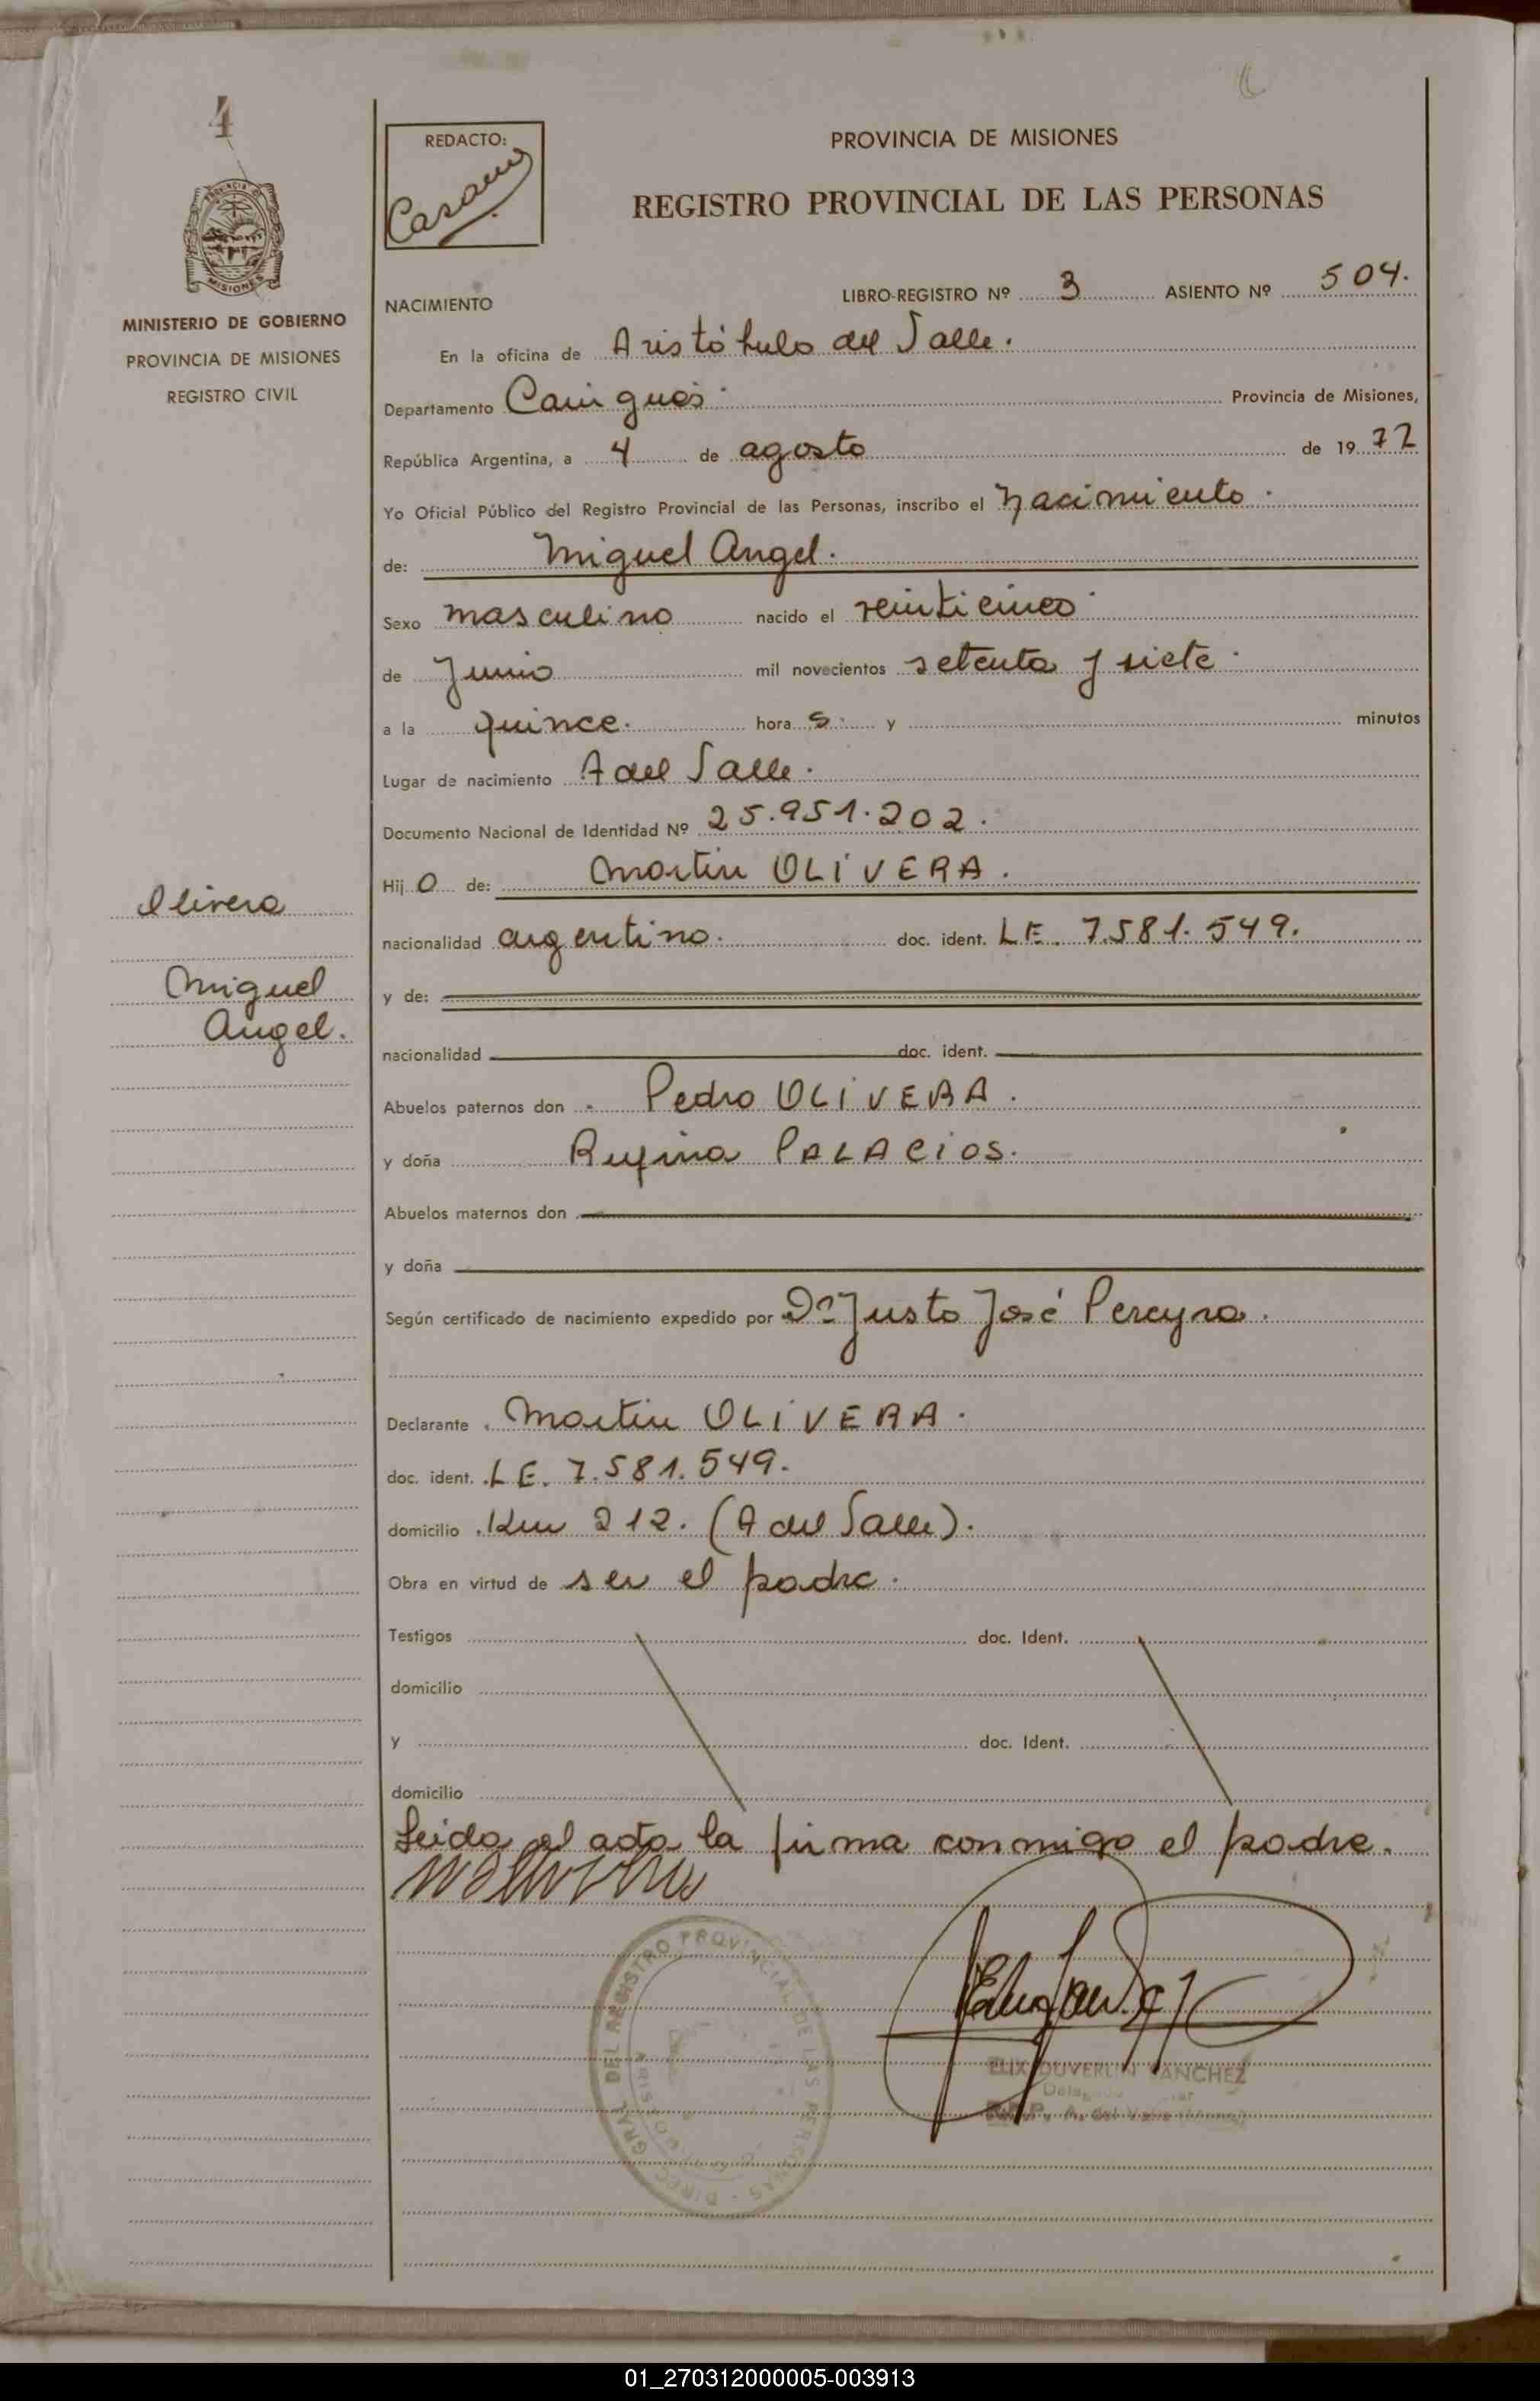 4
REDACTO:
PROVINCIA DE MISIONES
REGISTRO PROVINCIAL DE LAS PERSONAS
PROVINCIA DE
MISIONES
MINISTERIO DE GOBIERNO
PROVINCIA DE MISIONES
REGISTRO CIVIL
NACIMIENTO
LIBRO-REGISTRO Nº 3 ASIENTO Nº 504.
En la oficina de Aristóbulo del Valle.
Departamento Cainguás. Provincia de Misiones,
República Argentina, a 4 de agosto de 1977
Yo Oficial Público del Registro Provincial de las Personas, inscribo el nacimiento.
de: Miguel Angel.
Sexo masculino nacido el veinticinco
de Junio mil novecientos setenta y siete.
a la quince. hora s. y minutos
Lugar de nacimiento A del Valle.
Documento Nacional de Identidad Nº 25.951.202.
Hij o de: Martin OLIVERA.
nacionalidad argentino. doc. ident. L.E. 7.581.549.
y de:
nacionalidad doc. ident.
Olivera
Miguel
Angel.
Abuelos paternos don Pedro OLIVERA.
y doña Rufina PALACIOS.
Abuelos maternos don
y doña
Según certificado de nacimiento expedido por Dr Justo José Pereyra.
Declarante Martin OLIVERA.
doc. ident. L.E. 7.581.549.
domicilio Km 212. (A del Valle).
Obra en virtud de ser el padre.
Testigos doc. Ident.
domicilio
y doc. Ident.
domicilio
Leida el acta la firma conmigo el padre.
DIREC. GRAL. DEL REGISTRO PROVINCIAL DE LAS PERSONAS
SANCHEZ
01_270312000005-003913